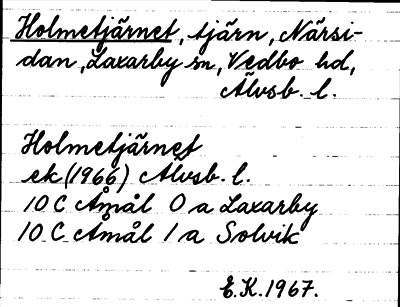 Holmetjärnet, tjärn, Närsi-
dan, Laxarby sn, Vedbo hd,
Älvsb. l.
Holmetjärnet
ek (1966) Älvsb. l.
10 C Åmål 0 a Laxarby
10 C Åmål 1 a Solvik
E.K. 1967.